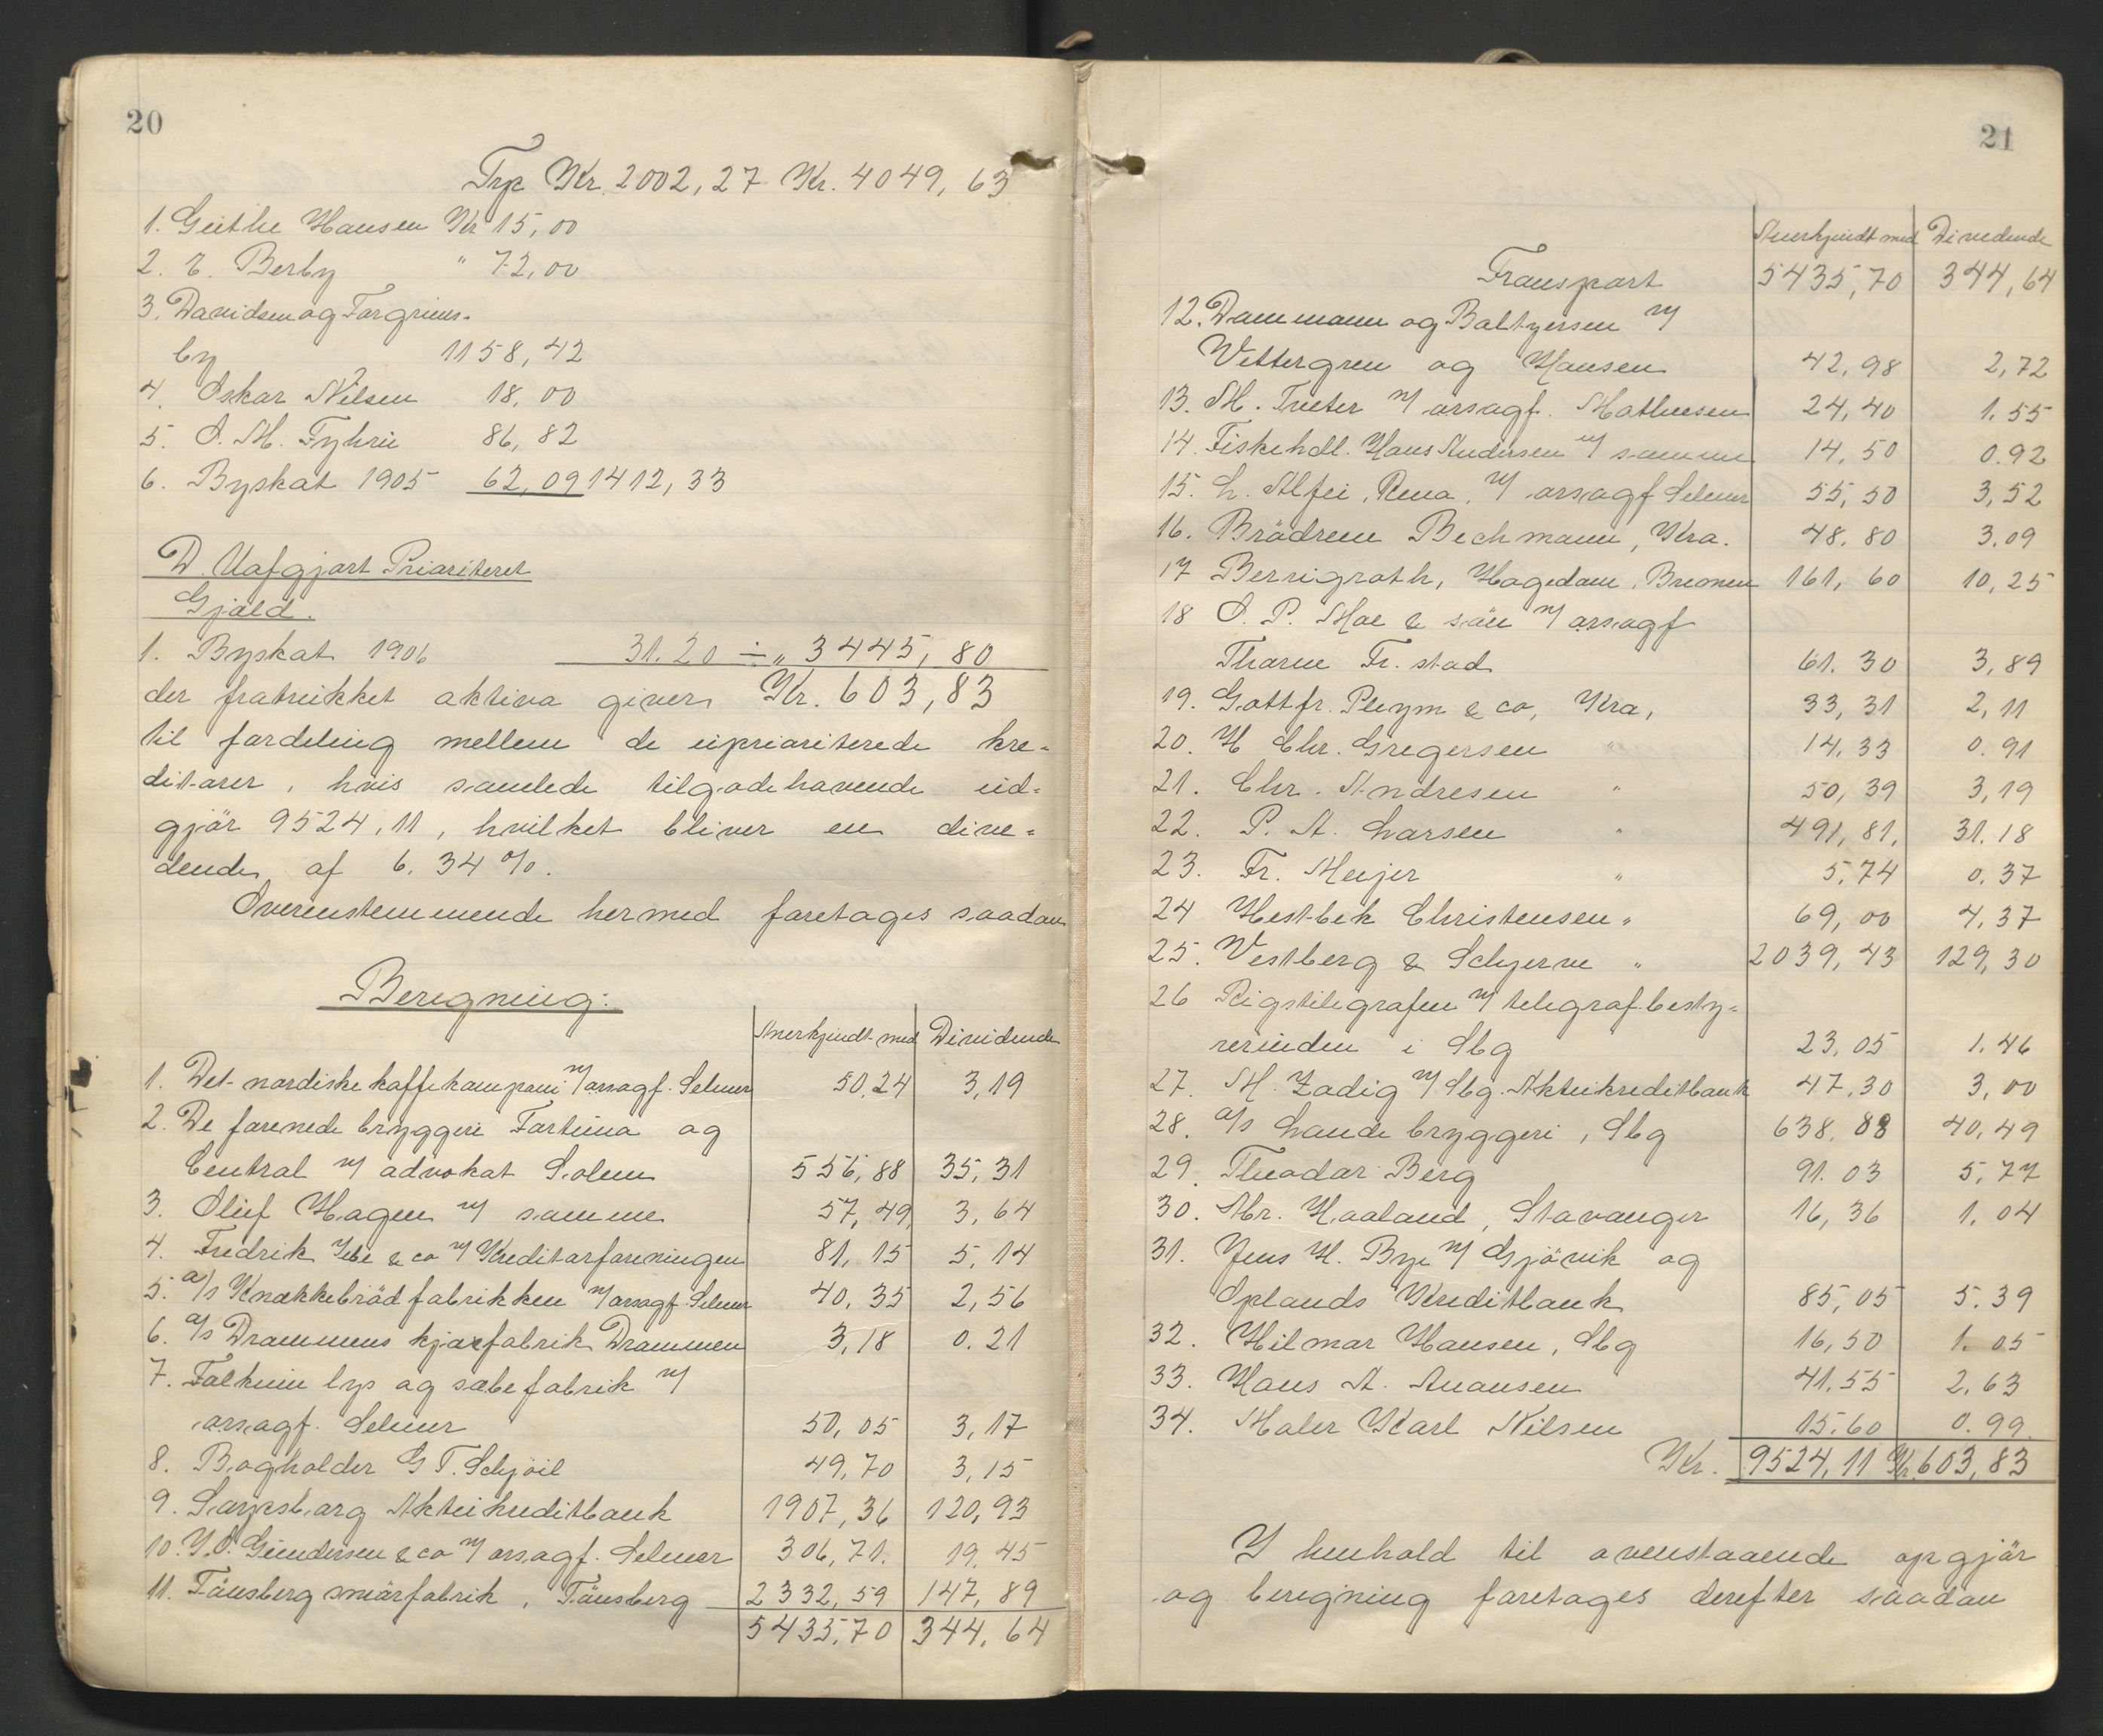 20
Trp Kr. 2002,27 Kr. 4049,63
1. Güthe Hansen Kr 15,00
2. E. Berby " 72,00
3. Davidsen og Torgrims-
by 1158,42
4. Oskar Nilsen 18,00
5. O. M. Fyhrie 86,82
6. Byskat 1905 62,09 1412,33
D. Uafgjort Prioriteret
Gjæld.
1. Byskat 1906 31.20 ÷ „ 3445,80
der fratrukket aktiva giver Kr. 603,83
til fordeling mellem de uprioriterede kre-
ditorer, hvis samlede tilgodehavende ud-
gjör 9524,11, hvilket bliver en dive-
dende af 6.34%.
Overenstemmende hermed foretages saadan
Beregning:
Anerkjendt med Dividende
1. Det nordiske kaffekompani v/ orsagf. Selmer 50,24 3,19
2. De forenede bryggeri Fortuna og
Central v/ advokat Solem 556,88 35,31
3. Oluf Hagen v/ samme 57,49 3,64
4. Fredrik Ibe & co v/ Kreditorforeningen 81,15 5,14
5. a/s Knækkebröd fabrikken v/ orsagf. Selmer 40,35 2,56
6. a/s Drammens kjæxfabrik, Drammen 3,18 0.21
7. Falkum lys og sæbefabrik v/
orsagf. Selmer 50,05 3,17
8. Bogholder G T. Schjöil 49,70 3,15
9. Sarpsborg Aktiekreditbank 1907,36 120,93
10. J. O. Gundersen & co v/ orsagf. Selmer 306,71. 19,45
11. Tönsberg smörfabrik, Tönsberg 2332,59 147,89
5435,70 344,64
21
Anerkjendt med Divedende
Transport 5435,70 344,64
12. Dammann og Baltzersen v/
Wettergren og Hansen 42,98 2,72
13. M. Tveter v/ orsagf. Mathiesen 24,40 1.55
14. Fiskehdl. Hans Andersen v/ samme 14,50 0.92
15. L. Alfei, Rena, v/ orsagf Selmer 55,50 3,52
16. Brödrene Bechmann, Kra. 48.80 3.09
17 Berrigroth, Hagedam, Bremen 161,60 10,25
18 O. P. Moe & sön v/ orsagf
Thorne Fr. stad 61.30 3,89
19. Gottfr. Pleym & co, Kra, 33,31 2,11
20. H Chr. Gregersen " 14,33 0.91
21. Chr. Andresen " 50,39 3,19
22. P. A. Larsen " 491,81, 31.18
23. Fr. Meijer " 5,74 0.37
24 Hestbek Christensen " 69,00 4,37
25. Vestberg & Schjerve " 2039,43 129,30
26 Rigstelegrafen v/ telegrafbesty-
rerinden i Sbg 23,05 1.46
27. M. Zadig v/ Sbg. Aktiekreditbank 47,30 3,00
28. a/s Lande bryggeri, Sbg 638.88 40,49
29. Theodor Berg 91.03 5,77
30. Mr. Haaland, Stavanger 16,36 1.04
31. Jens H. Bye v/ Gjövik og
Oplands Kreditbank 85,05 5.39
32. Hilmar Hansen, Sbg 16,50 1.05
33. Hans A. Anonsen 41.55 2,63
34. Maler Karl Nilsen 15.60 0.99
Kr. 9524,11 Kr 603,83
I henhold til ovenstaaende opgjör
og beregning foretages derefter saadan